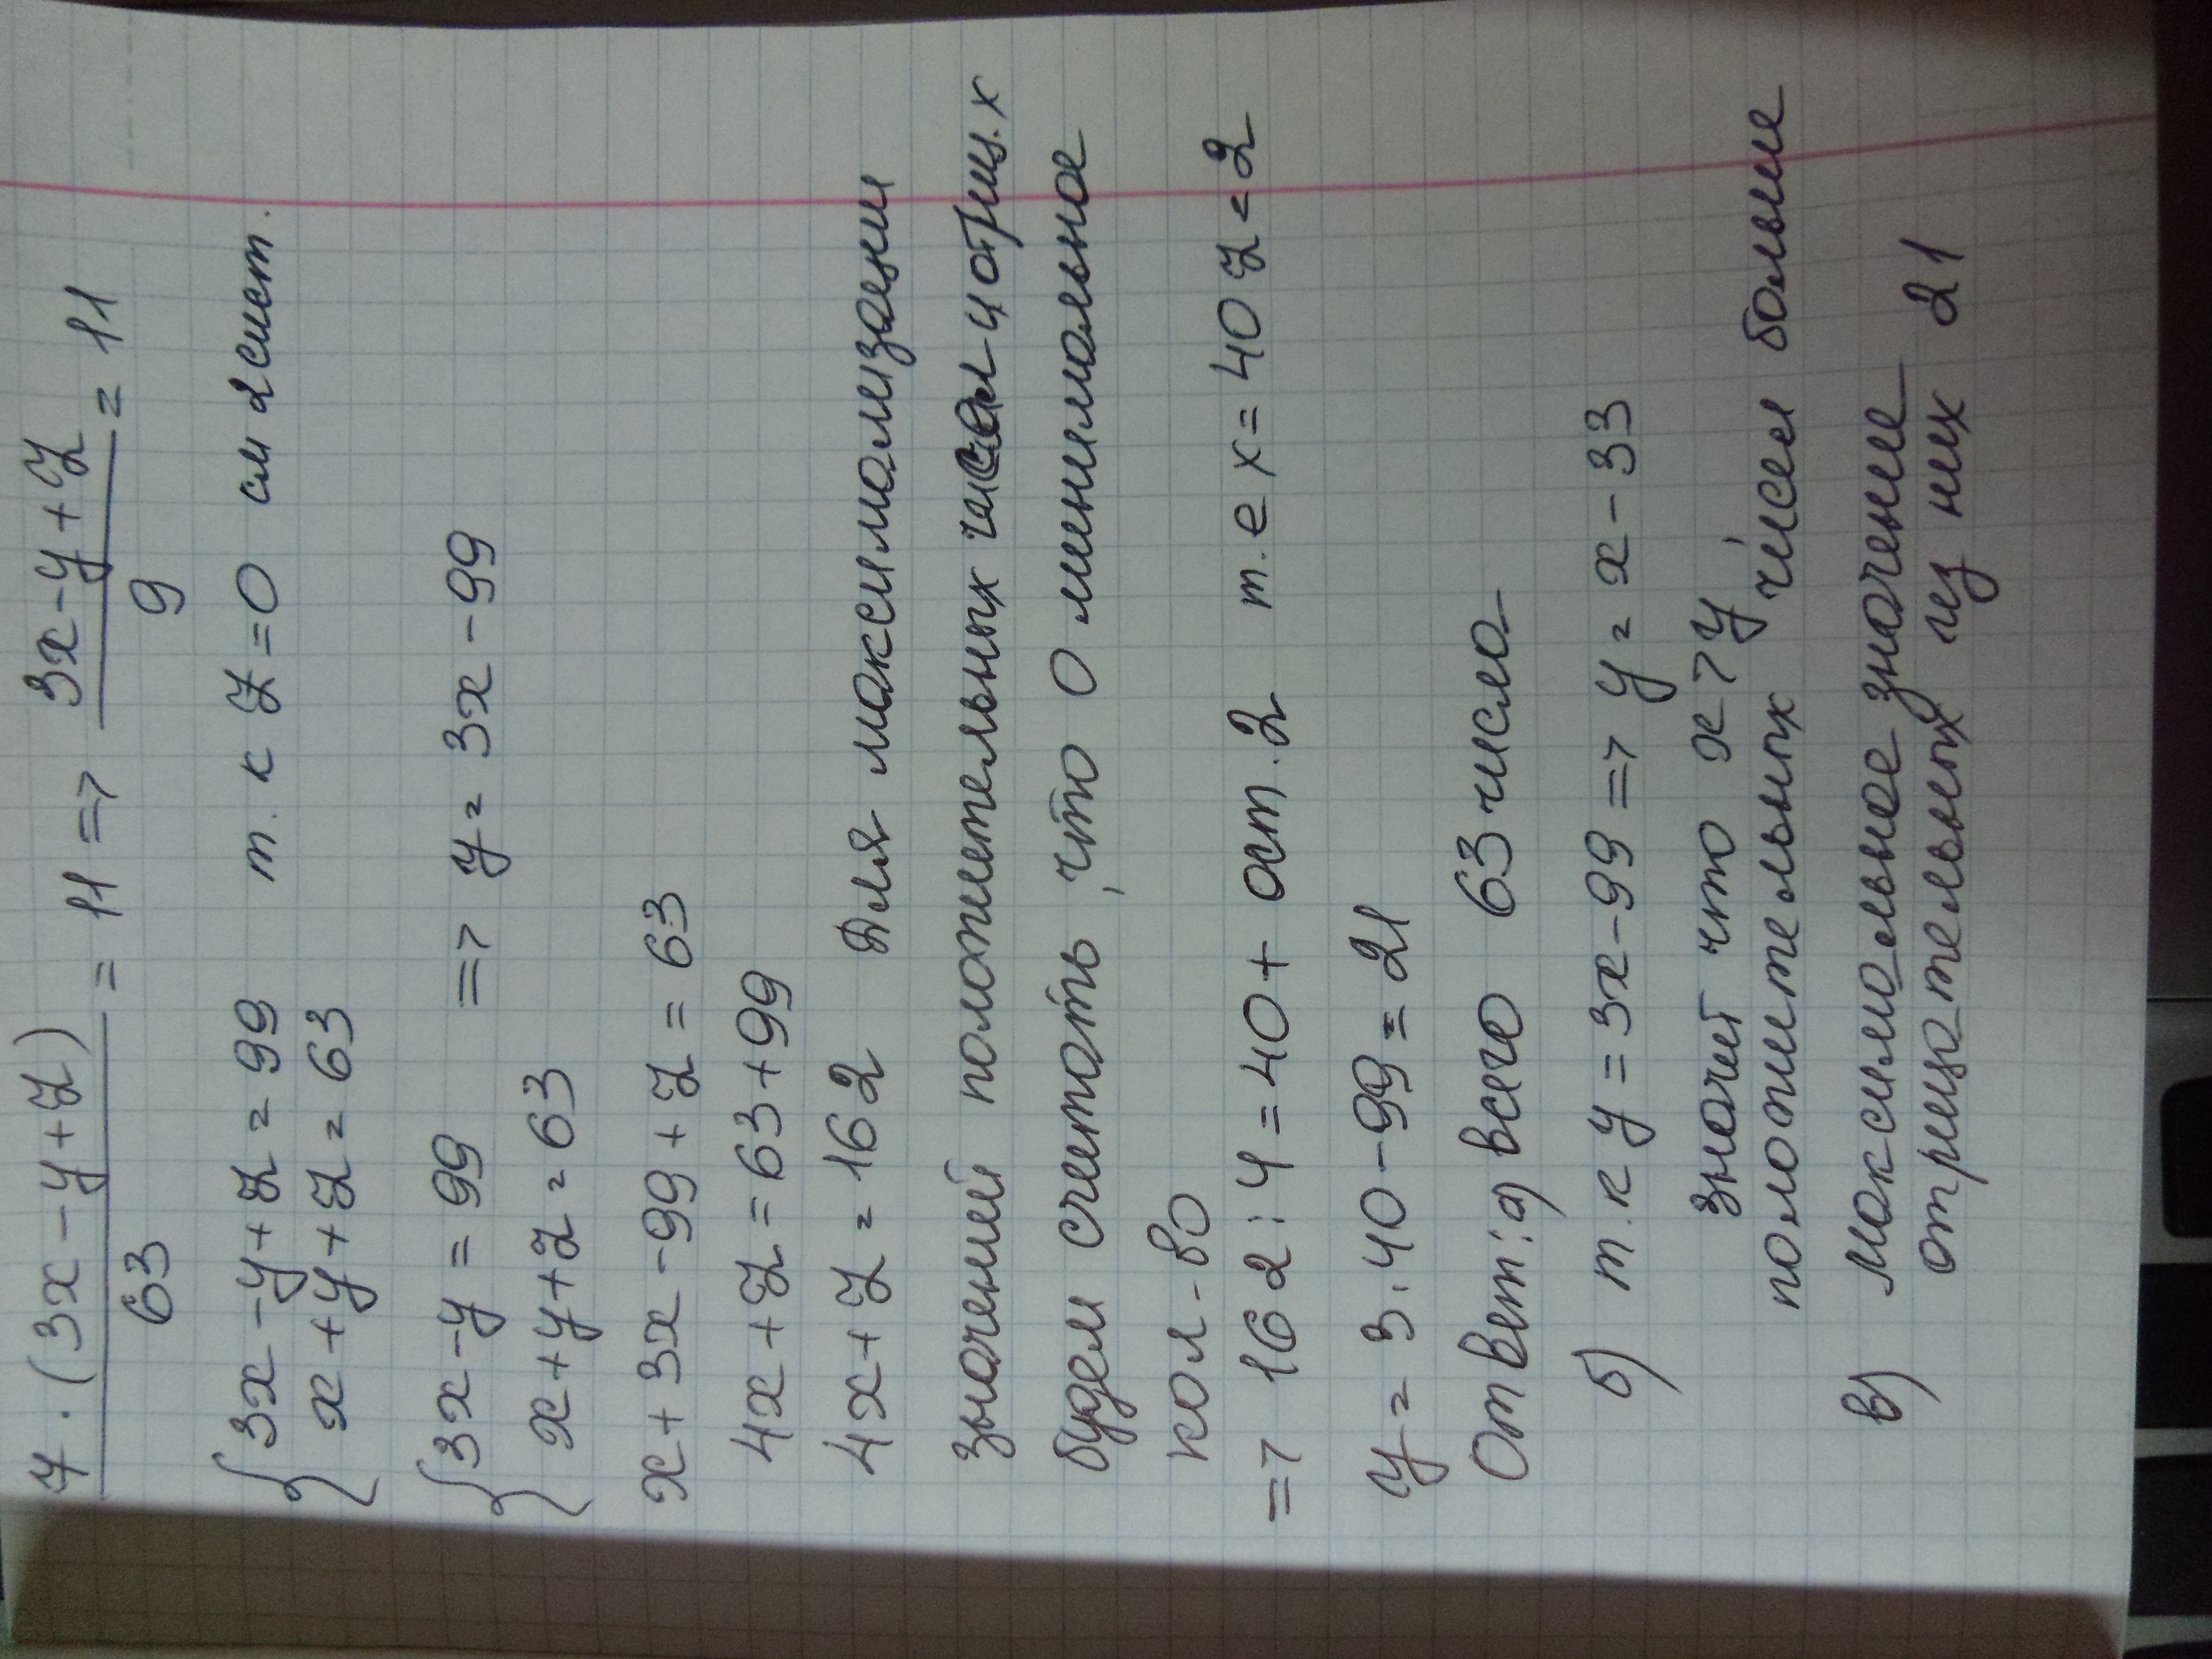 7·(3x-y+z)/63 = 11 => (3x-y+z)/9 = 11
{3x-y+z=99 т.к z=0 см 2 лист.
x+y+z=63
{3x-y=99 => y=3x-99
x+y+z=63
x+3x-99+z=63
4x+z=63+99
4x+z=162 Для максимализации
значений положительных чисел и отриц.х
будем считать, что 0 минимальное
кол-во
=> 162:4=40+ ост.2 т.е x=40 z=2
y=3·40-99=21
Ответ: а) всего 63 числа
б) т.к y=3x-99 => y=x-33
значит что x>y,
положительных чисел больше
в) максимальное значение
отрицательных из них 21